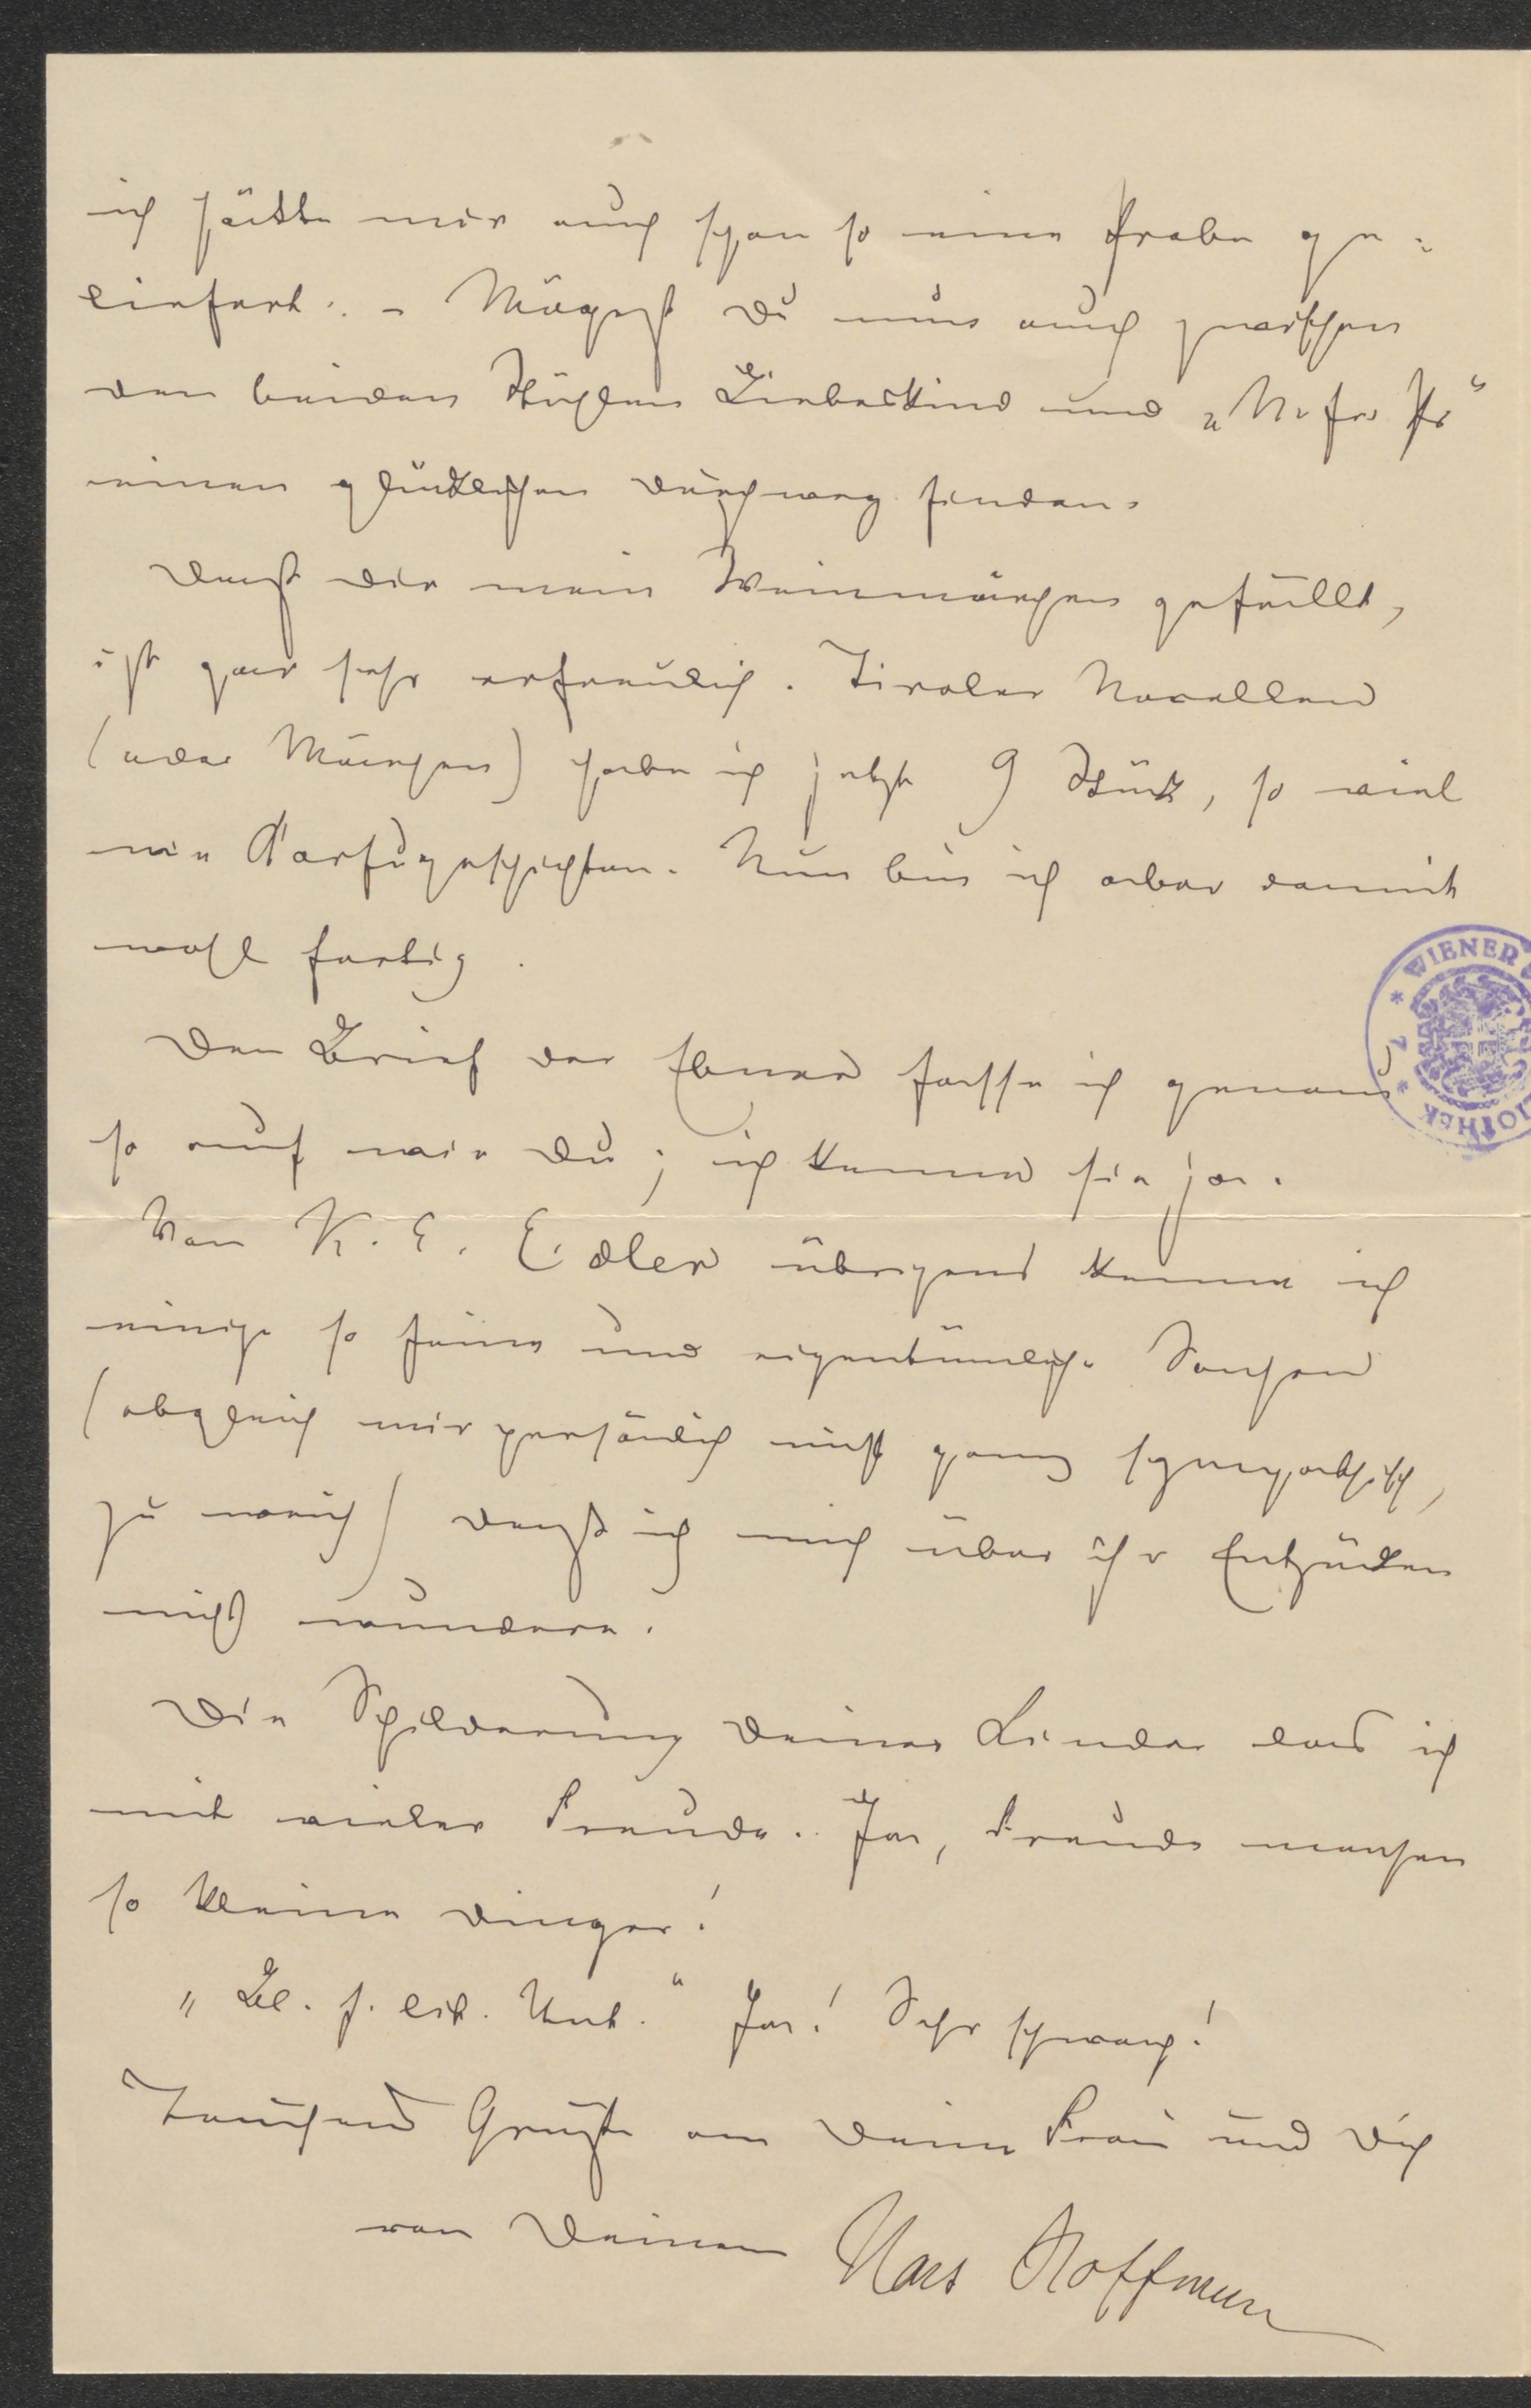 ich hätte mir auch schon so eine Probe ge=
liefert. – Mögest Du nun auch zwischen
den beiden Stühlen Liebeskind und „N. fr. Pr“
einen glücklichen Durchweg finden.
Daß Dir mein Weinmärchen gefällt,
ist gar sehr erfreulich. Tiroler Novellen
(oder Märchen) habe ich jetzt 9 Stück, so viel
wie Korfugeschichten. Nun bin ich aber damit
wohl fertig.
Den Brief der Ebner fasse ich genau
so auf wie Du; ich kenne sie ja.
Von K. E. Edler übrigens kenne ich
einige so feine und eigentümliche Sachen
(obgleich mir persönlich nicht ganz sympathisch,
zu weich) daß ich mich über ihr Entzücken
nicht wundere.
Die Schilderung Deiner Kinder las ich
mit vieler Freude. Ja, Freude machen
so kleine Dinger!
„Bl. f. lit. Unt.“ Ja! Sehr schwach!
Tausend Grüße an Deine Frau und Dich
von Deinem Hans Hoffmann
WIENER
7